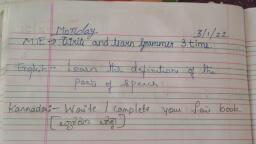 Monday 3/1/22
M.E → Write and learn grammer 3 time.
English:- Learn the definition of the
parts of speech.
Kannada:- Write / complete your fair book